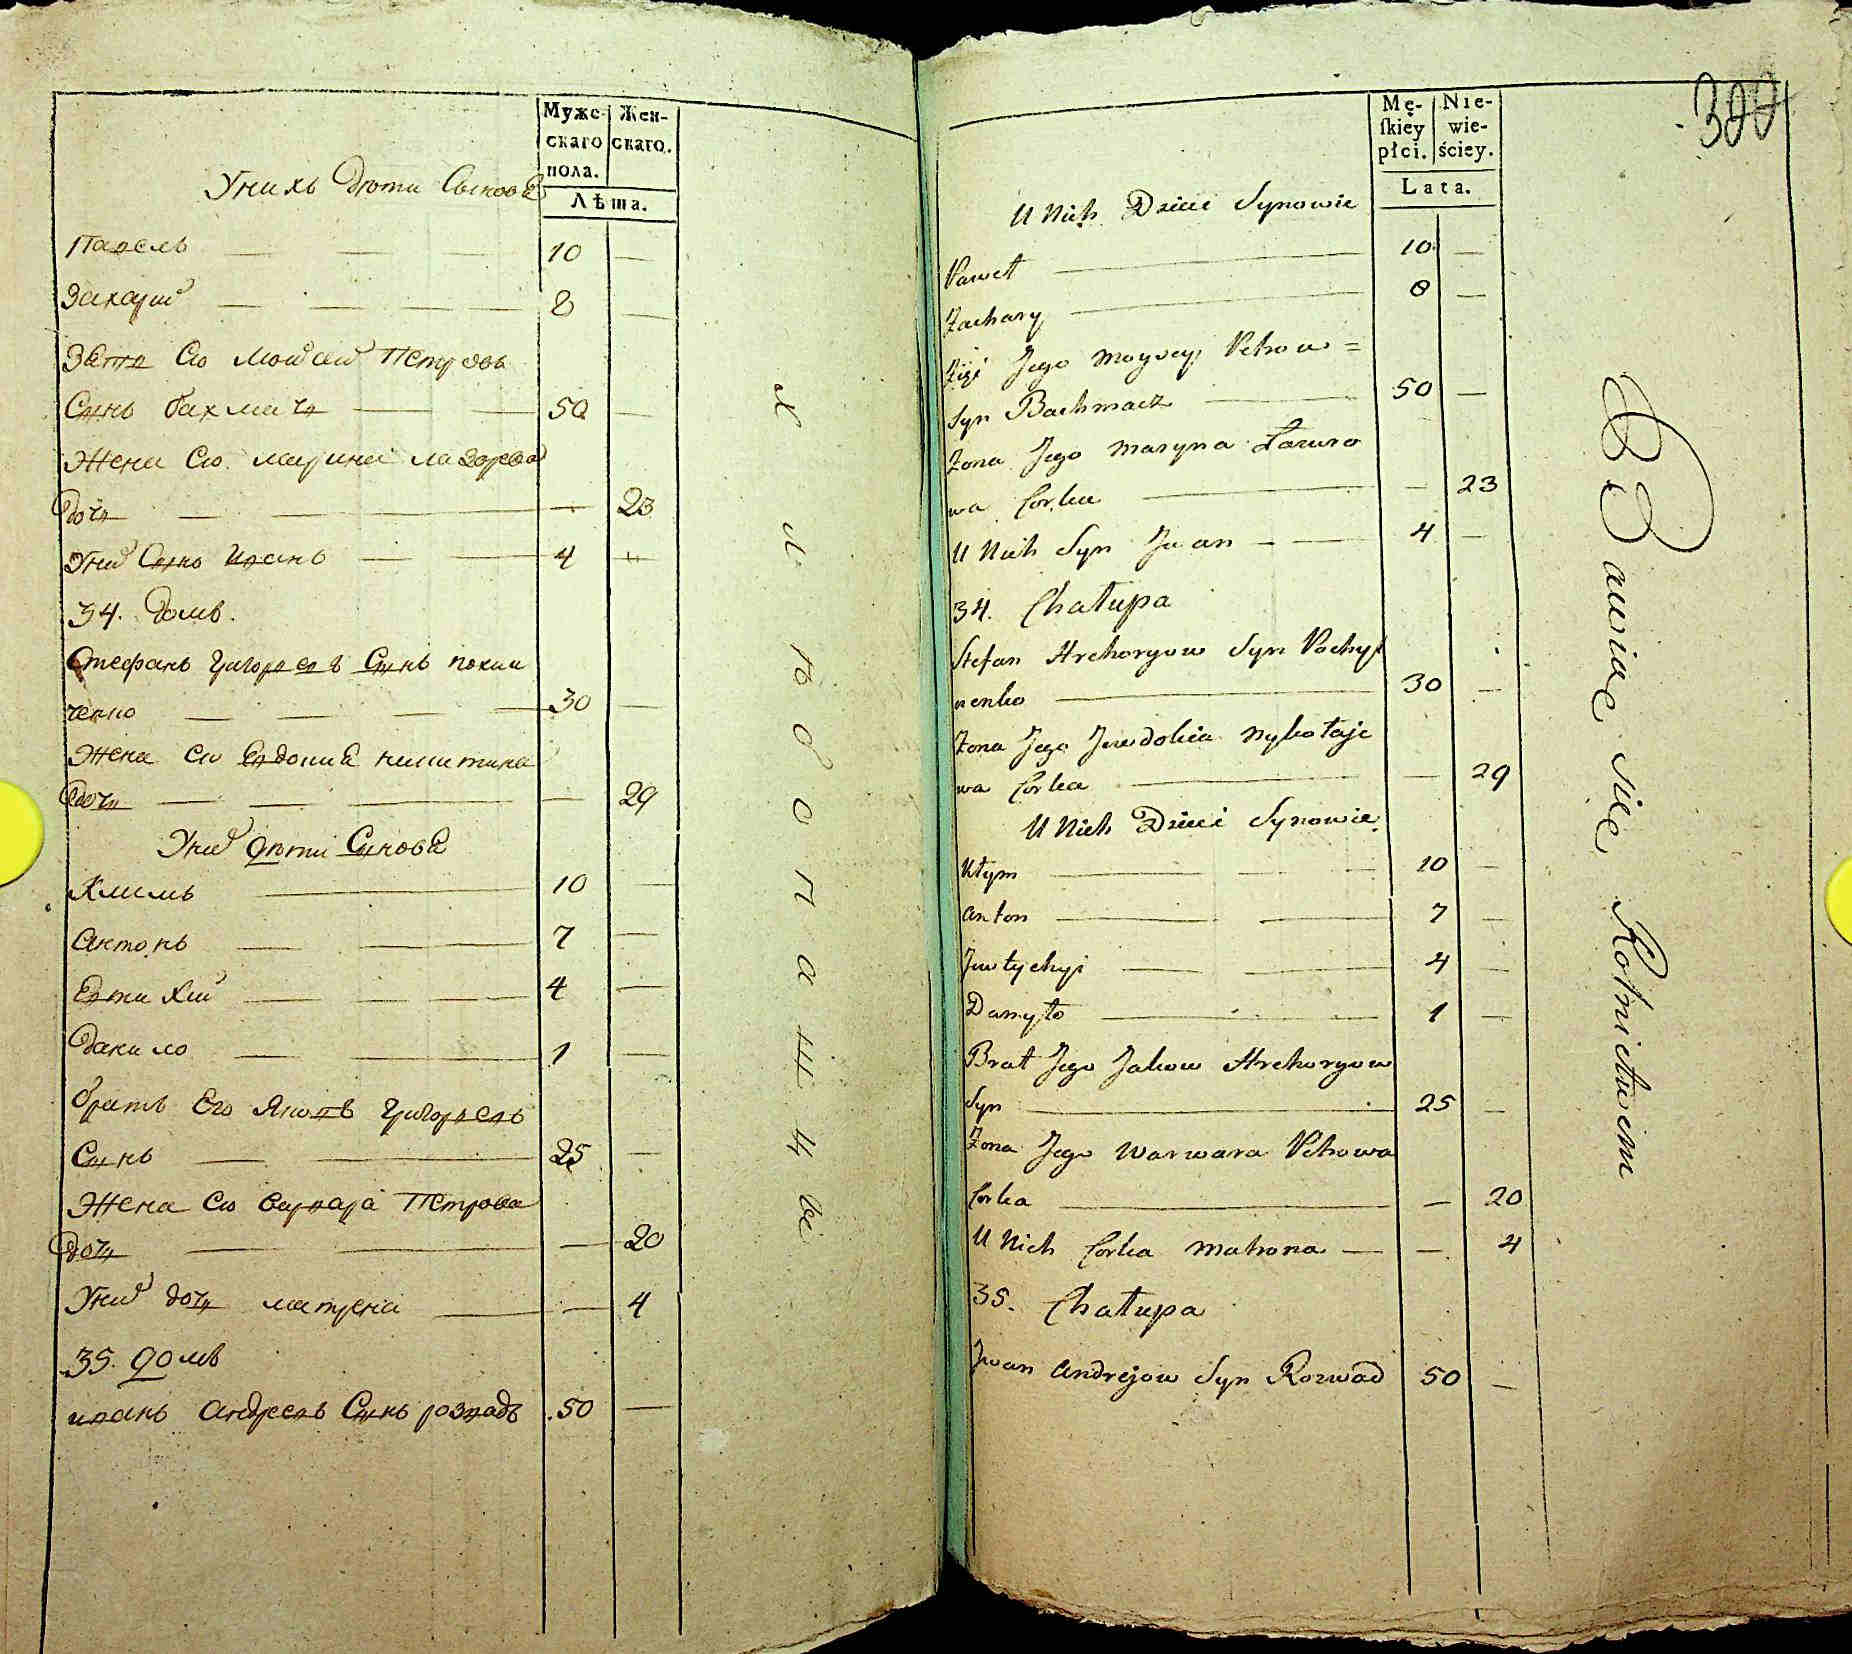 Муже-
скаго
пола.
Жен-
скаго.
Лѣта.
Унихъ Дѣти Сынове
Павелъ 10 —
Захарій 8 —
Зять Его Мойсей Петровъ
Сынъ Бахмачъ 50 —
Жена Его Марина Лазорева
дочь — 23
Уних Сынъ Иванъ 4 —
34. Домъ.
Стефанъ Григорьевъ Сынъ
30 —
Жена Его Евдокия Никитина
дочь — 29
Уних Дѣти Сынове
Климъ 10 —
Антонъ 7 —
Евтихій 4 —
Данило 1 —
братъ Его Яковъ Григорьевъ
Сынъ 25 —
Жена Его Варвара Петрова
дочь — 20
Уних дочь Матрена — 4
35. Домъ
Иванъ Андреевъ Сынъ Розвадъ 50 —
Хлѣбопашцы
Mę-
skiéy
płci.
Nie-
wie-
ściey.
Lata.
U Nich Dzieci Synowie
Paweł 10 —
Zachary 8 —
Zięć Jego Moysey Petrow =
Syn Bachmacz 50 —
Zona Jego Maryna Łazuro
wa Corka — 23
U Nich Syn Jwan 4 —
34. Chałupa
Stefan Hrehoryow Syn Pochyt
nenko 30 —
Zona Jego Jewdokia Nykołaje
wa Corka — 29
U Nich Dzieci Synowie
Kłym 10 —
Anton 7 —
Jewtychyi 4 —
Danyło 1 —
Brat Jego Jakow Hrehoryow
Syn 25 —
Zona Jego Warwara Petrowa
Corka — 20
U Nich Corka Matrona — 4
35. Chałupa
Jwan Andrejow Syn Rozwad 50 —
Bawiąc się Rolnictwem